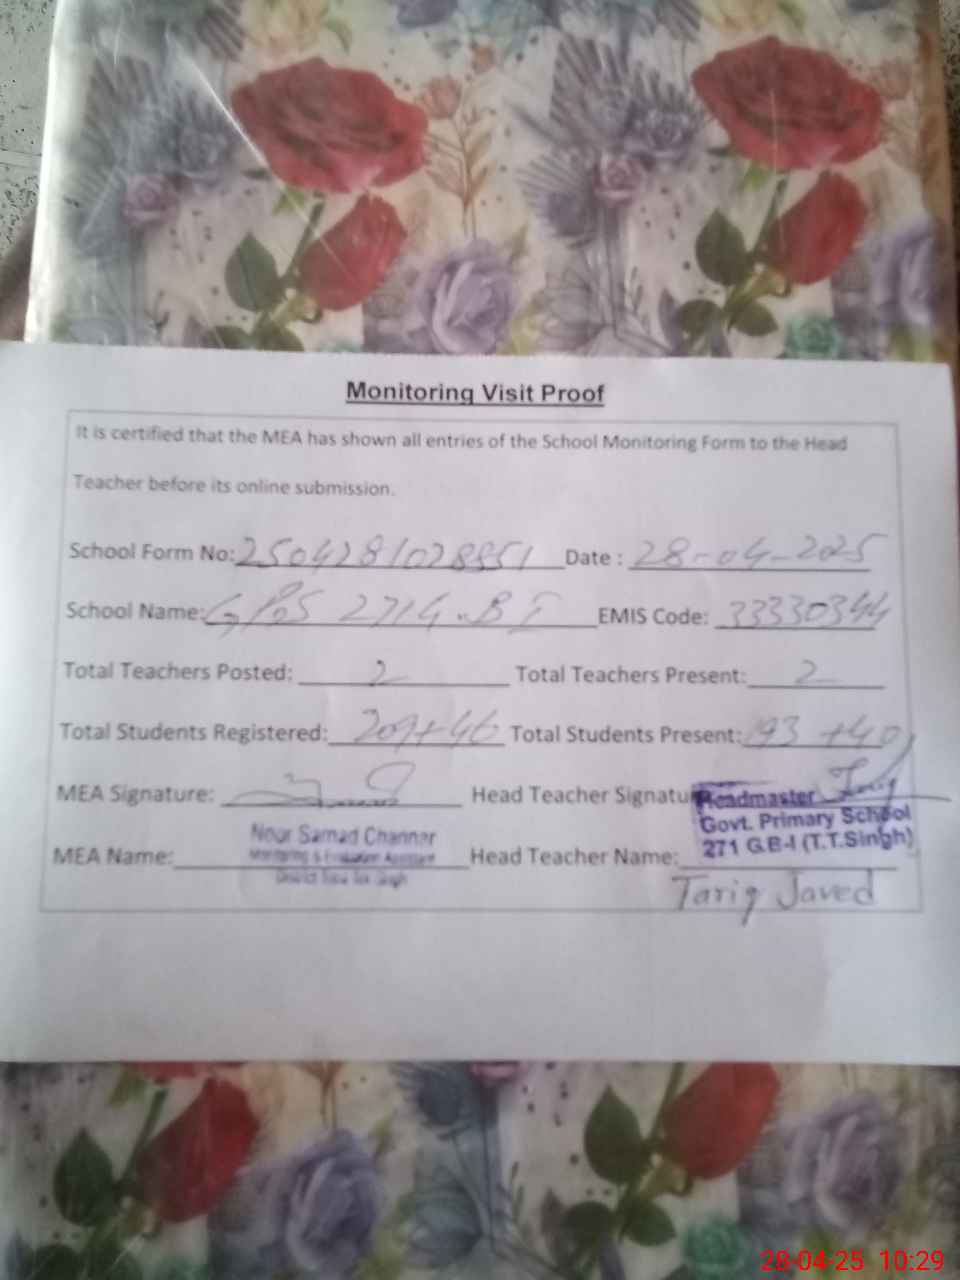 Monitoring Visit Proof
It is certified that the MEA has shown all entries of the School Monitoring Form to the Head
Teacher before its online submission.
School Form No: 2504281028851 Date : 28-04-2025
School Name: GPS 271 G.B I EMIS Code: 33330344
Total Teachers Posted: 2 Total Teachers Present: 2
Total Students Registered: 209+46 Total Students Present: 193+40
MEA Signature: Head Teacher Signatu
Headmaster
Govt. Primary School
271 G.B-I (T.T.Singh)
Noor Samad Channar
Monitoring & Evaluation Assistant
District Toba Tek Singh
MEA Name: Head Teacher Name:
Tariq Javed
28-04-25 10:29